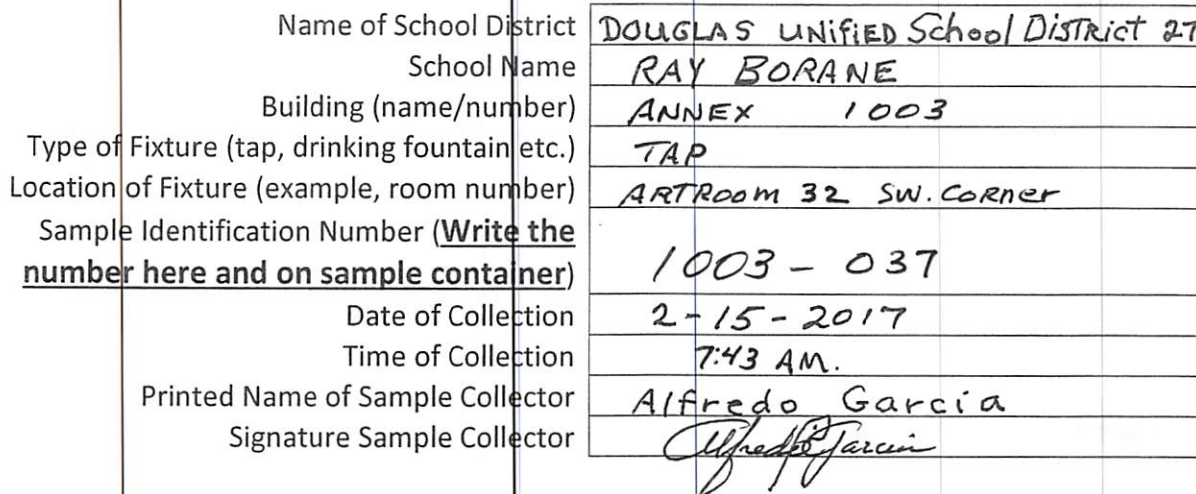 Name of School District DOUGLAS UNiFiED School DisTRict 27
School Name RAY BORANE
Building (name/number) ANNEX 1003
Type of Fixture (tap, drinking fountain etc.) TAP
Location of Fixture (example, room number) ARTRoom 32 SW. CoRNer
Sample Identification Number (Write the
number here and on sample container) 1003 - 037
Date of Collection 2-15-2017
Time of Collection 7:43 AM.
Printed Name of Sample Collector Alfredo Garcia
Signature Sample Collector Alfredo Garcia